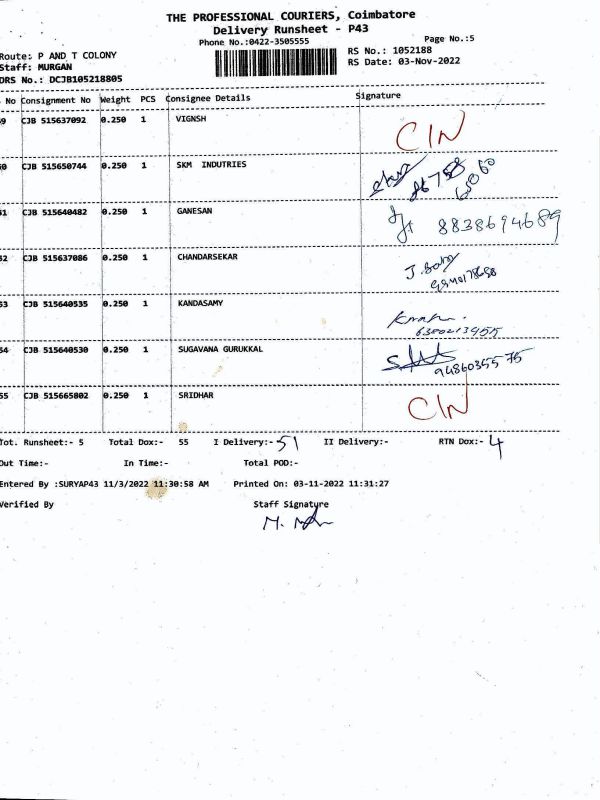 THE PROFESSIONAL COURIERS, Coimbatore
Delivery Runsheet - P43
Phone No.:0422-3505555
Page No.:5
Route: P AND T COLONY
RS No.: 1052188
Staff: MURGAN
RS Date: 03-Nov-2022
DRS No.: DCJB105218805
No Consignment No Weight PCS Consignee Details Signature
9 CJB 515637092 0.250 1 VIGNSH CIN
0 CJB 515650744 0.250 1 SKM INDUTRIES
51 CJB 515640482 0.250 1 GANESAN 8838694689
52 CJB 515637086 0.250 1 CHANDARSEKAR
53 CJB 515640535 0.250 1 KANDASAMY
6380213455
54 CJB 515640530 0.250 1 SUGAVANA GURUKKAL
9486035575
55 CJB 515665802 0.250 1 SRIDHAR CIN
Tot. Runsheet:- 5 Total Dox:- 55 I Delivery:- 51 II Delivery:- RTN Dox:- 4
Out Time:- In Time:- Total POD:-
Entered By :SURYAP43 11/3/2022 11:30:58 AM Printed On: 03-11-2022 11:31:27
Verified By Staff Signature